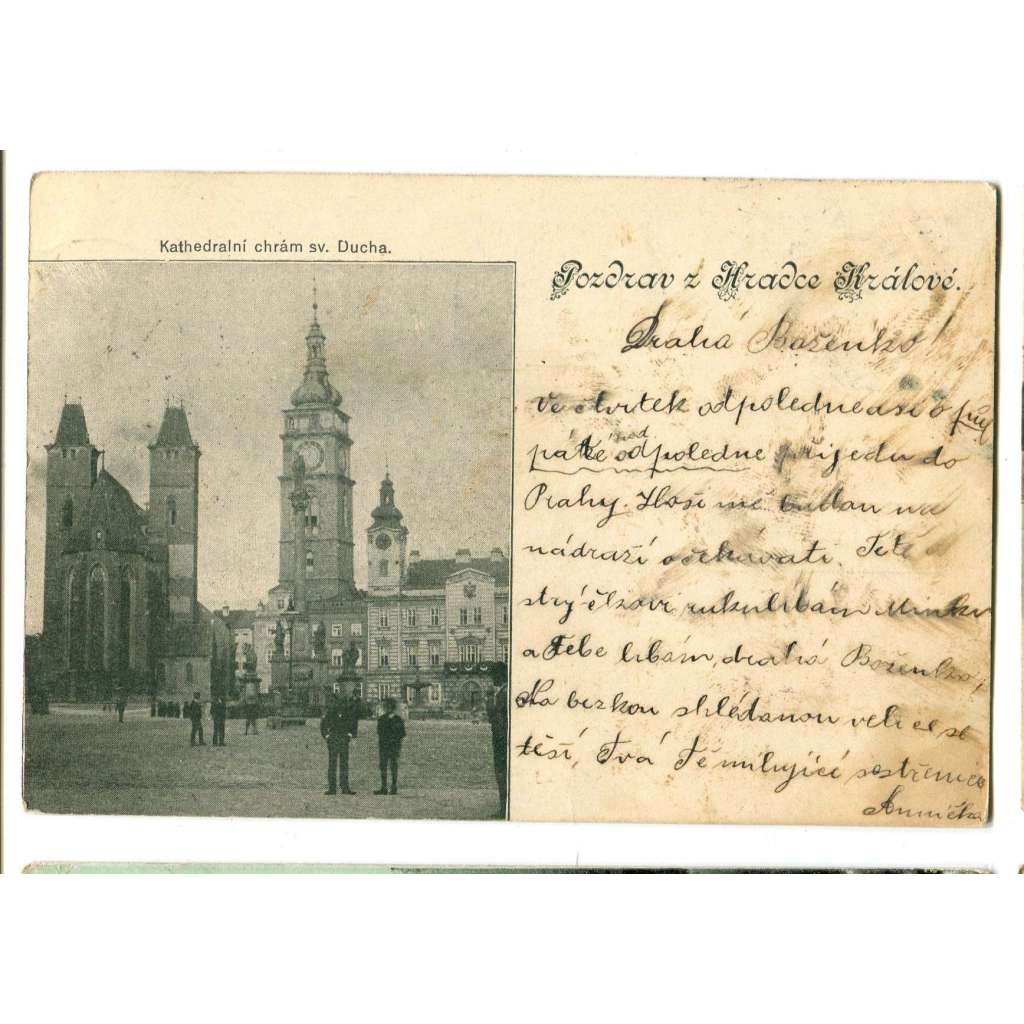 Kathedralní chrám sv. Ducha.
Pozdrav z Hradce Králové.
Drahá Boženko!
Ve čtvrtek odpoledne asi o
páté odpoledne přijedu do
Prahy. Hoši mě budou na
nádraží očekávati. Tetě
strýčkovi rukulíbám Minku
a Tebe líbám, drahá Boženko,
Na brzkou shledanou velice se
těší, Tvá Tě milující sestřenice
Annička